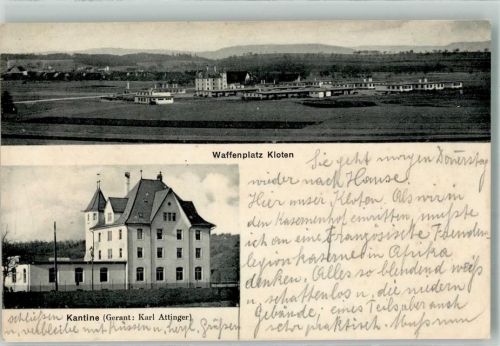 Waffenplatz Kloten
Sie geht morgen Donerstag
wieder nach Hause.
Hier unser Kloten. Als wir in
den Kasernenhof einritten, mußte
ich an eine Französische Fremden-
legionkaserne in Afrika
denken. Alles so blendend weiß
u. schattenlos u. die niedern
Gebäude, eines Teils aber auch
sehr praktisch. Muß nun
Kantine (Gerant: Karl Attinger)
schließen
u. verbleibe mit Küssen u. herzl. Grüßen